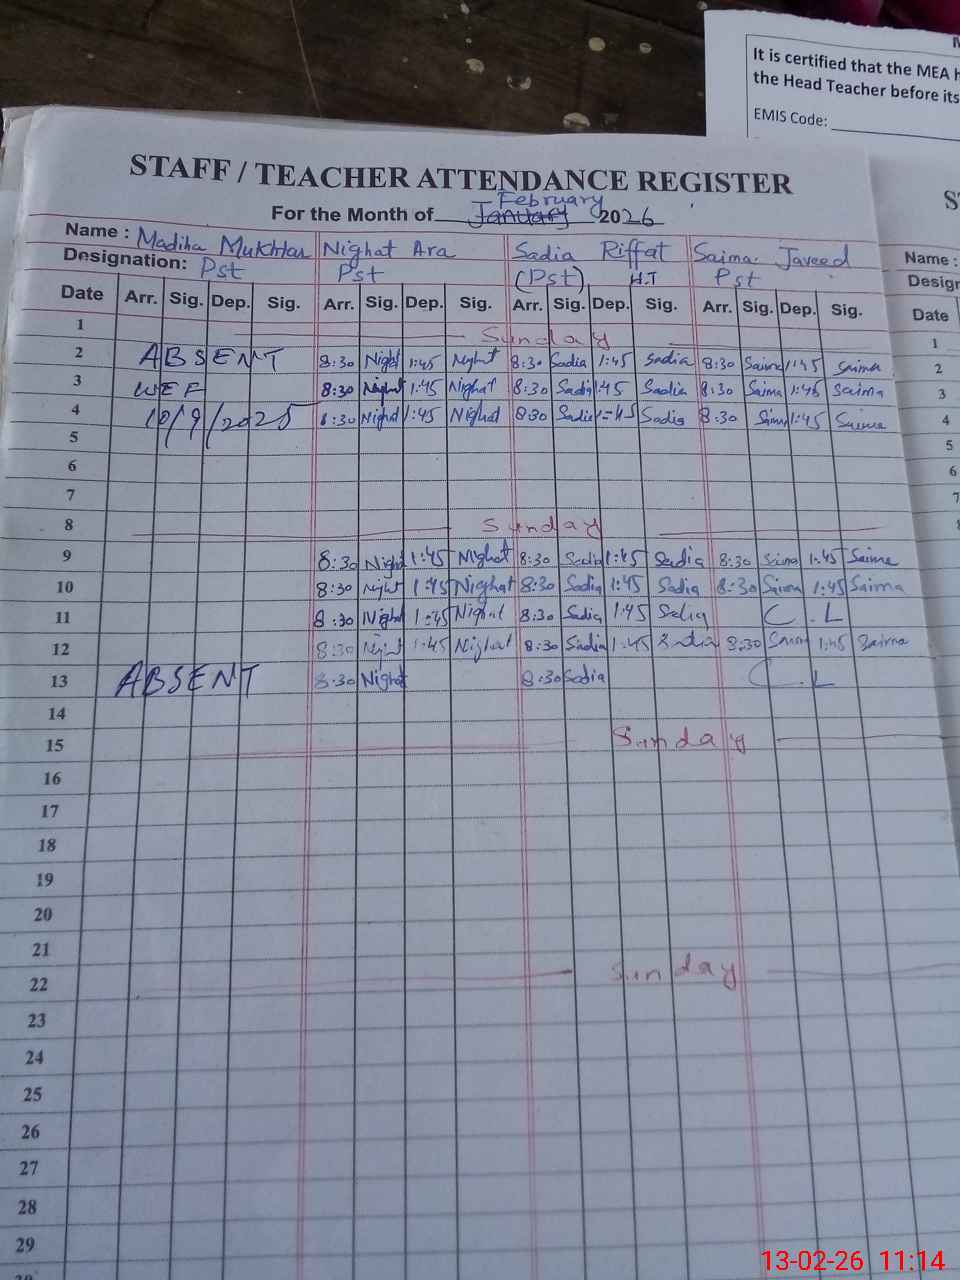 It is certified that the MEA h
the Head Teacher before its
EMIS Code:
STAFF / TEACHER ATTENDANCE REGISTER
February
For the Month of January 2026
Name : Madiha Mukhtar Nighat Ara Sadia Riffat Saima Javeed Name :
Designation: Pst Pst (Pst) H.T Pst Design
Date Arr. Sig. Dep. Sig. Arr. Sig. Dep. Sig. Arr. Sig. Dep. Sig. Arr. Sig. Dep. Sig. Date
1 Sunday 1
2 ABSENT 8:30 Night 1:45 Night 8:30 Sadia 1:45 Sadia 8:30 Saima 1:45 Saima 2
3 WEF 8:30 Night 1:45 Nighat 8:30 Sadia 1:45 Sadia 8:30 Saima 1:45 Saima 3
4 10/9/2025 8:30 Nighat 1:45 Nighat 8:30 Sadia 1:45 Sadia 8:30 Saima 1:45 Saima 4
5 5
6 6
7 7
8 Sunday
9 8:30 Nighat 1:45 Nighat 8:30 Sadia 1:45 Sadia 8:30 Saima 1:45 Saima
10 8:30 Night 1:45 Nighat 8:30 Sadia 1:45 Sadia 8:30 Saima 1:45 Saima
11 8:30 Nighat 1:45 Nighat 8:30 Sadia 1:45 Sadia C.L
12 8:30 Night 1:45 Nighat 8:30 Sadia 1:45 Sadia 8:30 Saima 1:45 Saima
13 ABSENT 8:30 Nighat 8:30 Sadia C.L
14
15 Sunday
16
17
18
19
20
21
22 Sunday
23
24
25
26
27
28
29
13-02-26 11:14